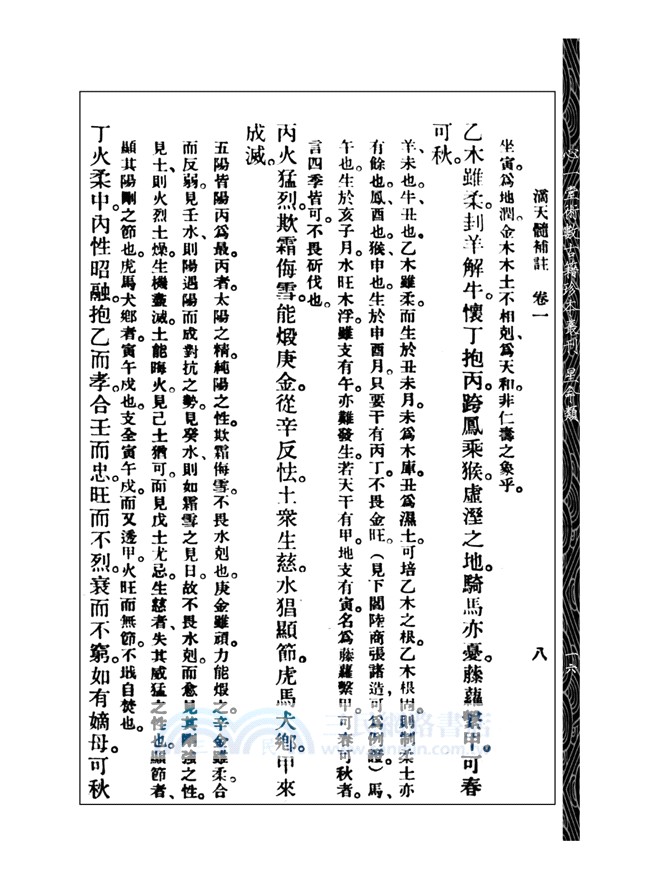 心一堂術數古籍珍本叢刊 星命類
一六
滴天髓補註 卷一
八
坐寅爲地潤。金水木土不相剋、爲天和、非仁壽之象乎。
乙木雖柔。刲羊解牛。懷丁抱丙。跨鳳乘猴。虛溼之地。騎馬亦憂。藤蘿繫甲。可春
可秋。
羊、未也。牛、丑也。乙木雖柔、而生於丑未月。未爲木庫。丑爲濕土。可培乙木之根。乙木根固、則制柔土亦
有餘也。鳳、酉也。猴、申也。生於申酉月。只要干有丙丁。不畏金旺。(見下閻陸商張諸造可爲例證)馬、
午也。生於亥子月。水旺木浮。雖支有午。亦難發生。若天干有甲。地支有寅。名爲藤蘿繫甲。可春可秋者。
言四季皆可。不畏斫伐也。
丙火猛烈。欺霜侮雪。能煅庚金。從辛反怯。土衆生慈。水猖顯節。虎馬犬鄉。甲來
成滅。
五陽皆陽丙爲最。丙者、太陽之精。純陽之性。欺霜侮雪。不畏水剋也。庚金雖頑。力能煅之。辛金雖柔。合
而反弱。見壬水、則陽遇陽而成對抗之勢。見癸水、則如霜雪之見日。故不畏水剋。而愈見其剛強之性。
見土、則火烈土燥。生機盡滅。土能晦火。見己土猶可。而見戊土尤忌。生慈者、失其威猛之性也。顯節者、
顯其陽剛之節也。虎馬犬鄉者、寅午戌也。支全寅午戌。而又透甲。火旺而無節。不戢自焚也。
丁火柔中。內性昭融。抱乙而孝。合壬而忠。旺而不烈。衰而不窮。如有嫡母。可秋
三民網路書店